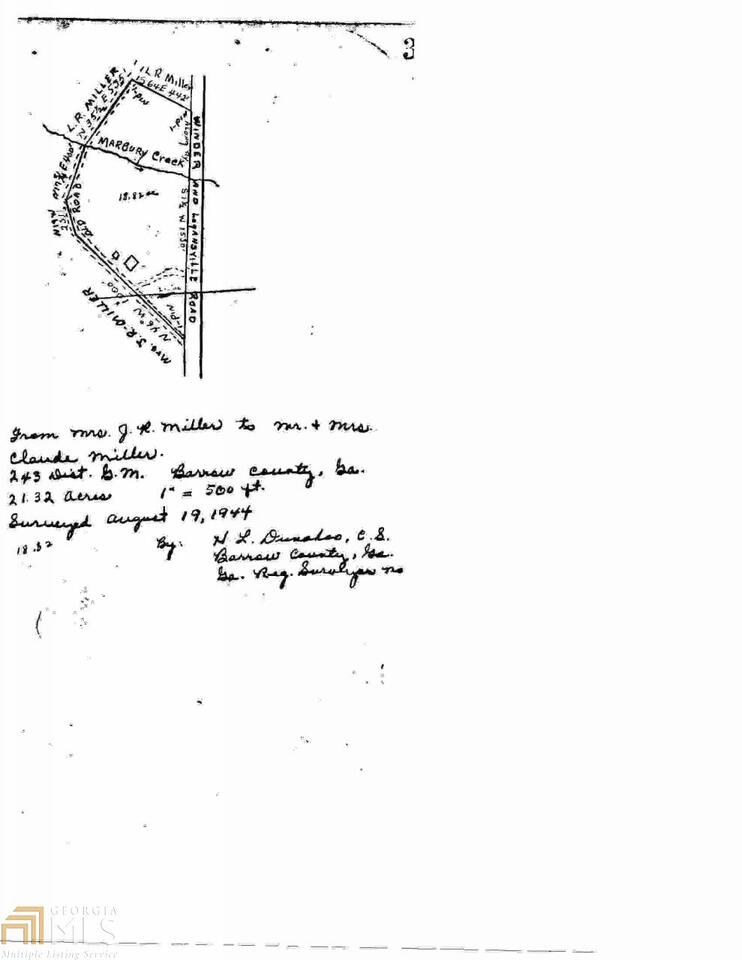 3
L R Miller
S64E 442'
L.R. MILLER
N 35½ E 575
I-PIN
I-Pin
MARBURY Creek
18.82 ac
OLD ROAD
N19W
WINDER AND LOGANSVILLE ROAD
1000
N 46 W
I-PIN
Mrs. J.R. MILLER
From Mrs. J. R. Miller to Mr. + Mrs.
Claude Miller.
243 Dist. G.M. Barrow County, Ga.
21.32 Acres 1" = 500 ft.
Surveyed August 19, 1944
18.82 By: H L. Dunahoo, C.S.
Barrow County, Ga.
Ga. Reg. Surveyor no
GEORGIA
MLS
Multiple Listing Service